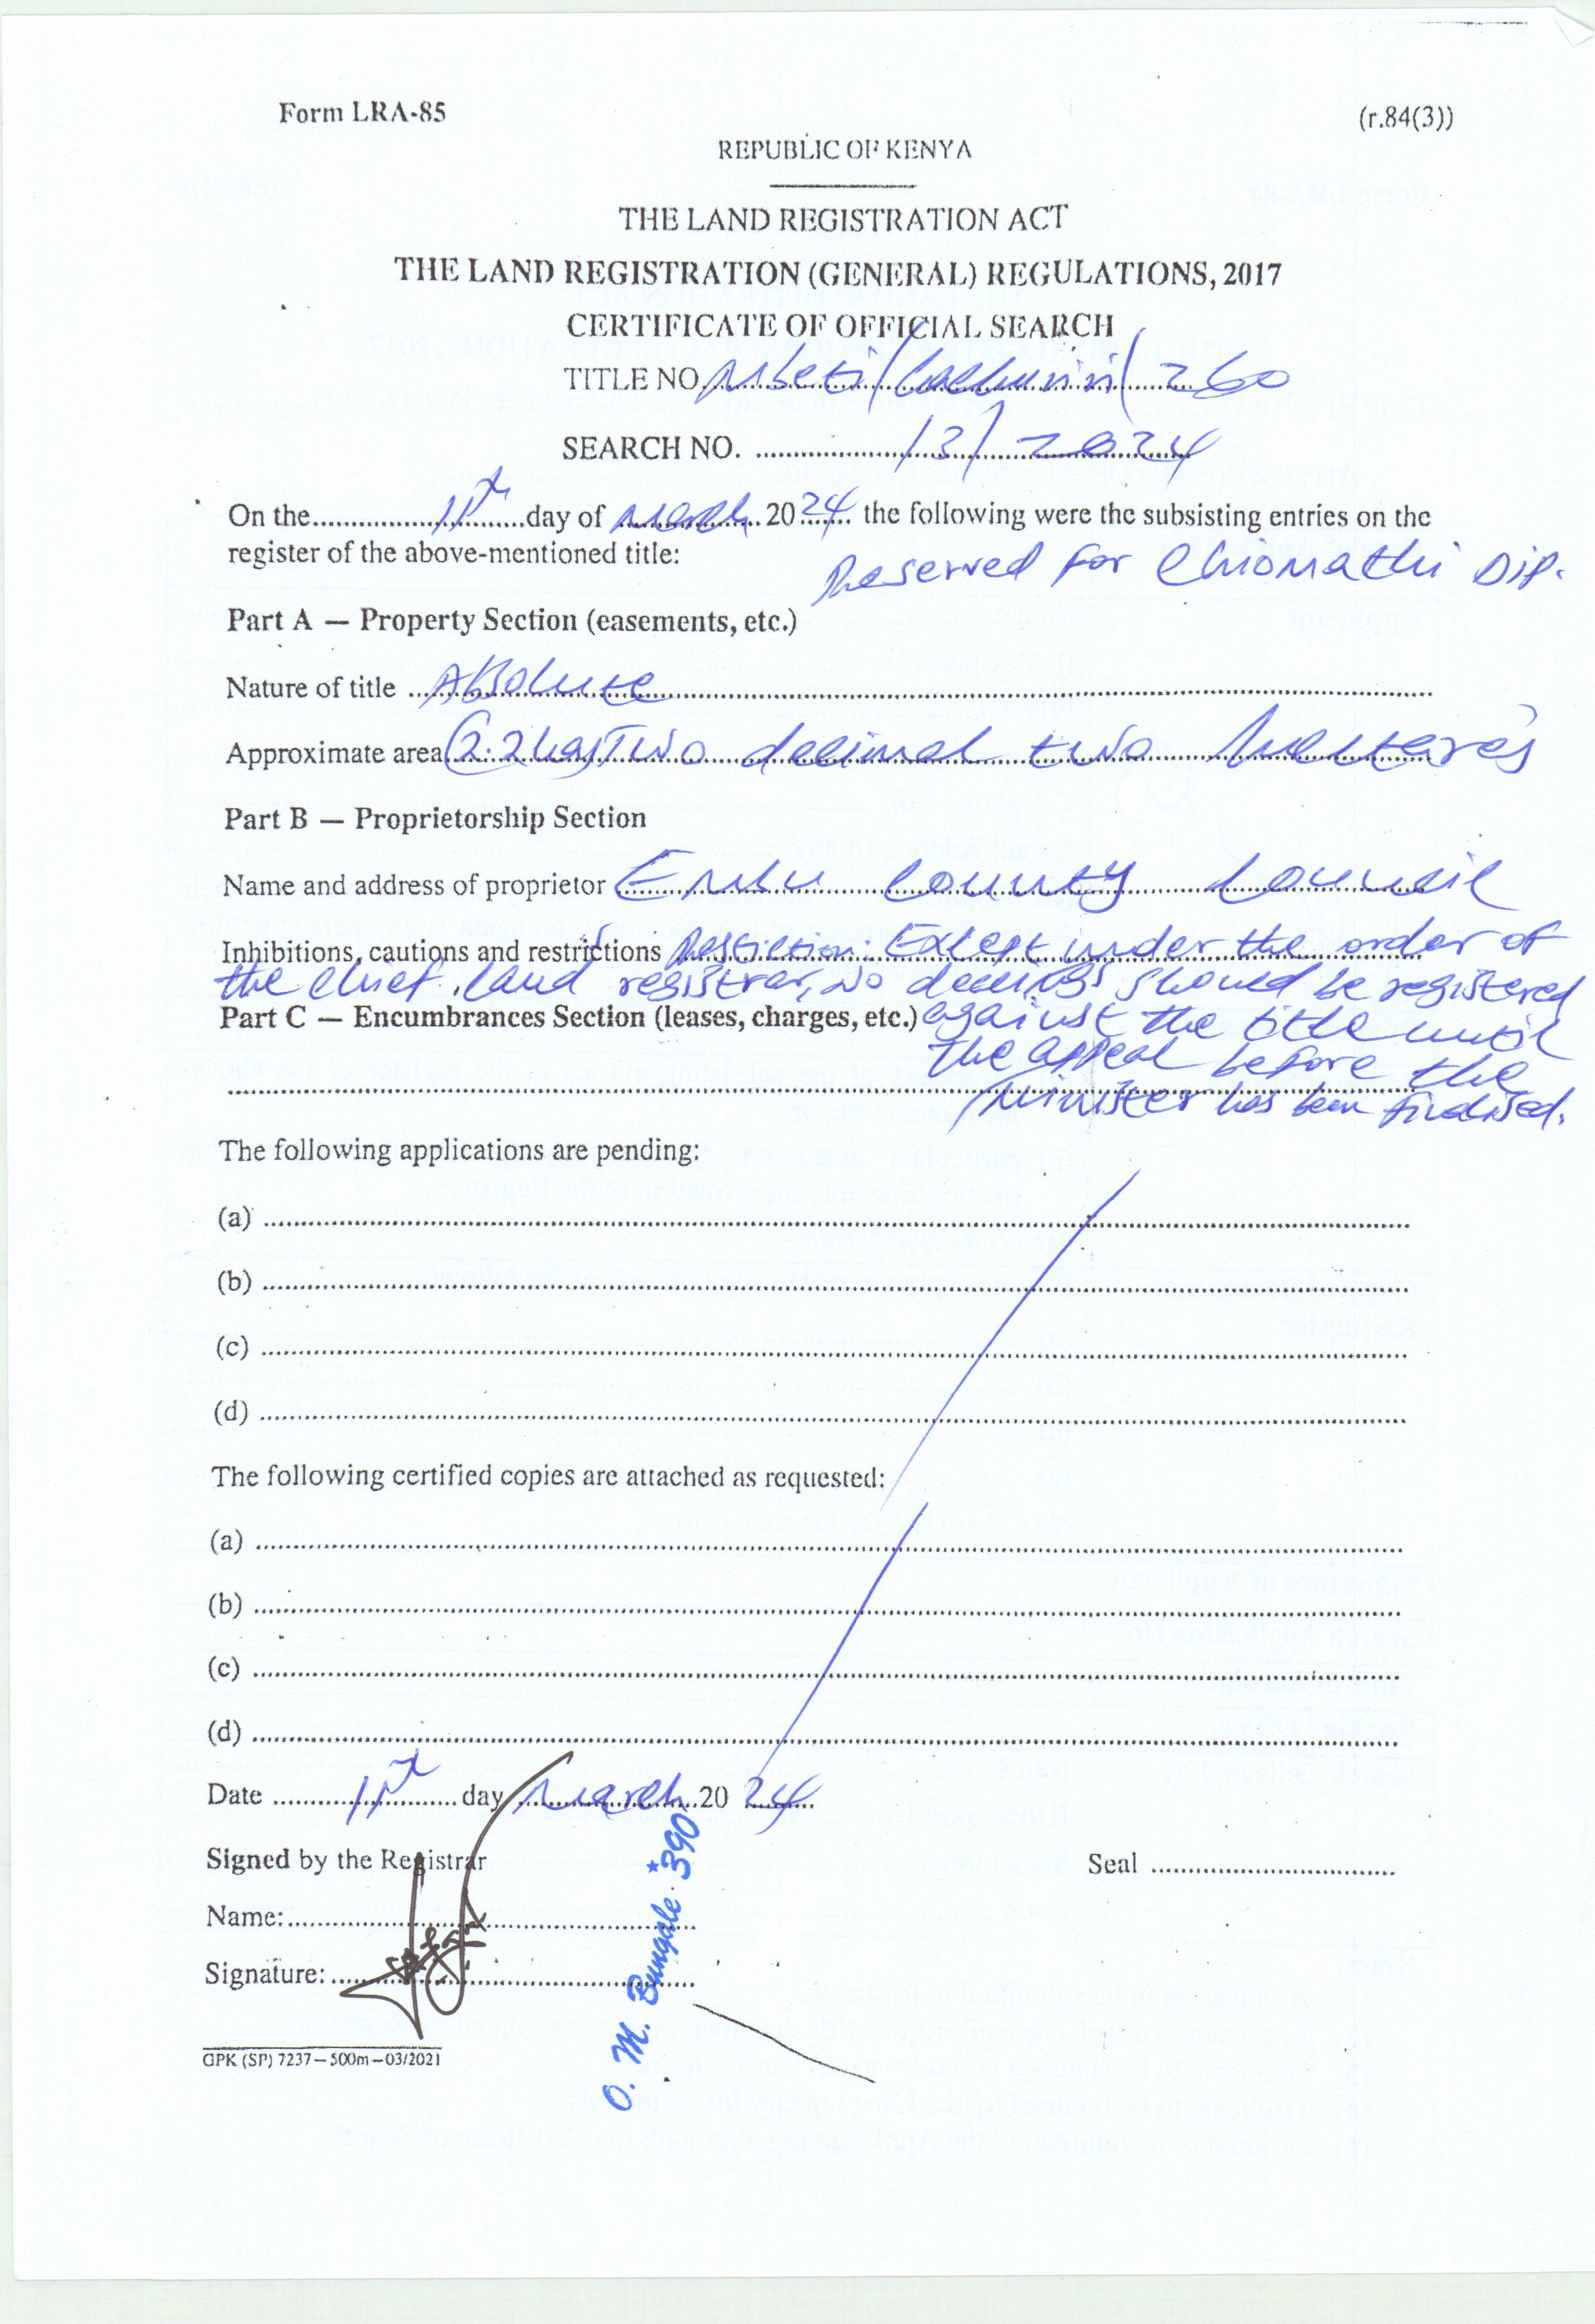 Form LRA-85
(r.84(3))
REPUBLIC OF KENYA
THE LAND REGISTRATION ACT
THE LAND REGISTRATION (GENERAL) REGULATIONS, 2017
CERTIFICATE OF OFFICIAL SEARCH
TITLE NO. Mbeti/Gachuriri/260
SEARCH NO. /3/2024
On the 11th day of March 2024 the following were the subsisting entries on the
register of the above-mentioned title:
Reserved for Dip.
Part A — Property Section (easements, etc.)
Nature of title Absolute
Approximate area (2.2ha) Two decimal two hectares
Part B — Proprietorship Section
Name and address of proprietor Embu County Council
Inhibitions, cautions and restrictions Restriction: Except under the order of
the chief land registrar, no dealings should be registered
Part C — Encumbrances Section (leases, charges, etc.) against the title until
the appeal before the
Minister has been finalised.
The following applications are pending:
(a)
(b)
(c)
(d)
The following certified copies are attached as requested:
(a)
(b)
(c)
(d)
Date 11th day March 2024
Signed by the Registrar
Seal
Name:
Signature:
O. M. Bungale *390
GPK (SP) 7237—500m—03/2021